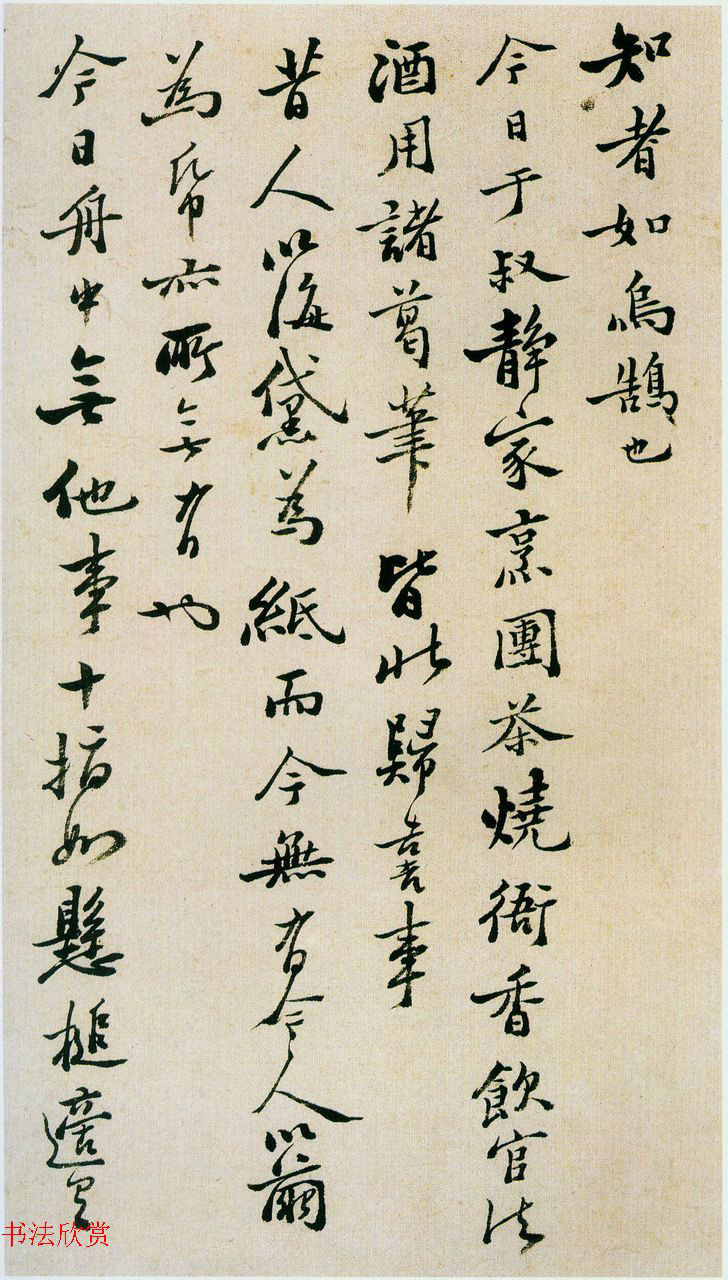 知者如烏鵠也
今日于叔靜家烹團茶燒衙香飲官法
酒用諸葛筆皆北歸喜事
昔人以海黛為紙而今無有今人以繭
為帋亦所無有也
今日舟中無他事十指如懸槌適有
书法欣赏